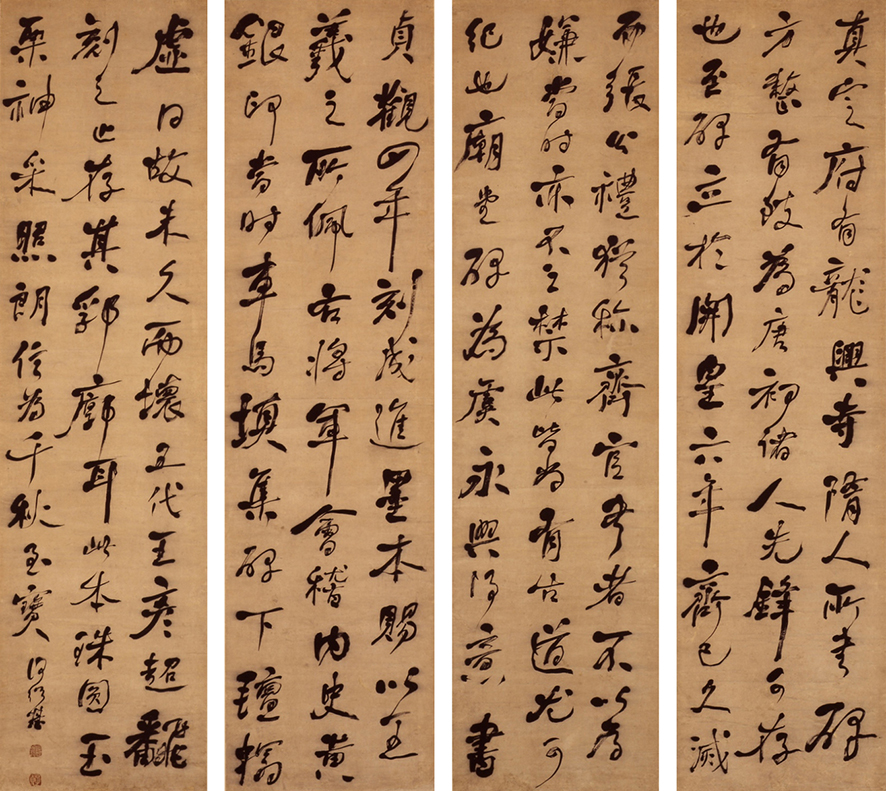 真定府有龍興寺隋人所書碑
方整有致為唐初諸人先鋒可存
也至碑立於開皇六年齊已久滅
而張公禮猶稱齊官書者不以為
嫌當時亦不之禁此皆為有古道尤可
紀也廟堂碑為虞永興得意書
貞觀四年刻成進墨本賜以王
羲之所佩右將軍會稽內史黃
銀印當時車馬填集碑下氈搨
虛日故未久而壞五代王彥超翻
刻之止存其郛廓耳此本珠圓玉
栗神采照朗信為千秋至寶何紹基